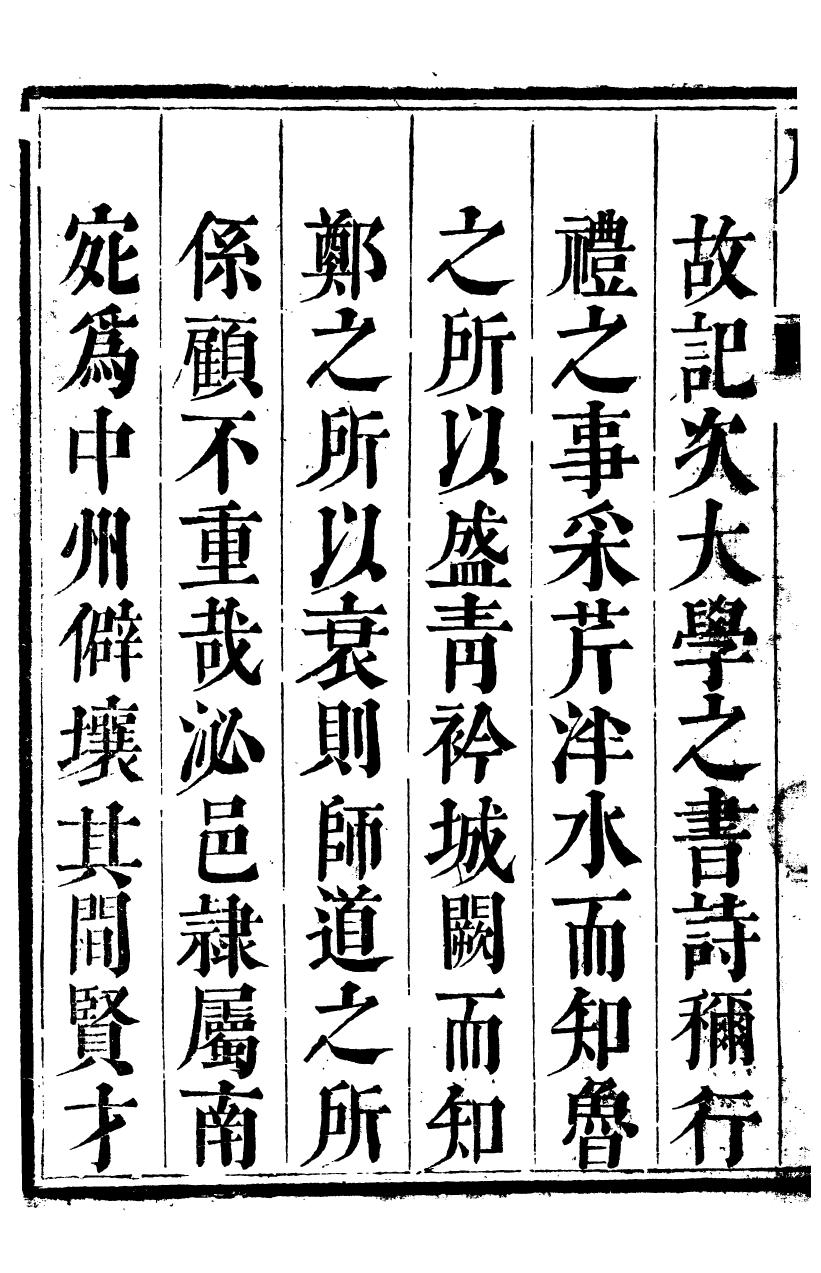 故記次大學之書詩稱行
禮之事采芹泮水而知魯
之所以盛靑衿城闕而知
鄭之所以衰則師道之所
係顧不重哉泌邑隷屬南
宛爲中州僻壤其間賢才